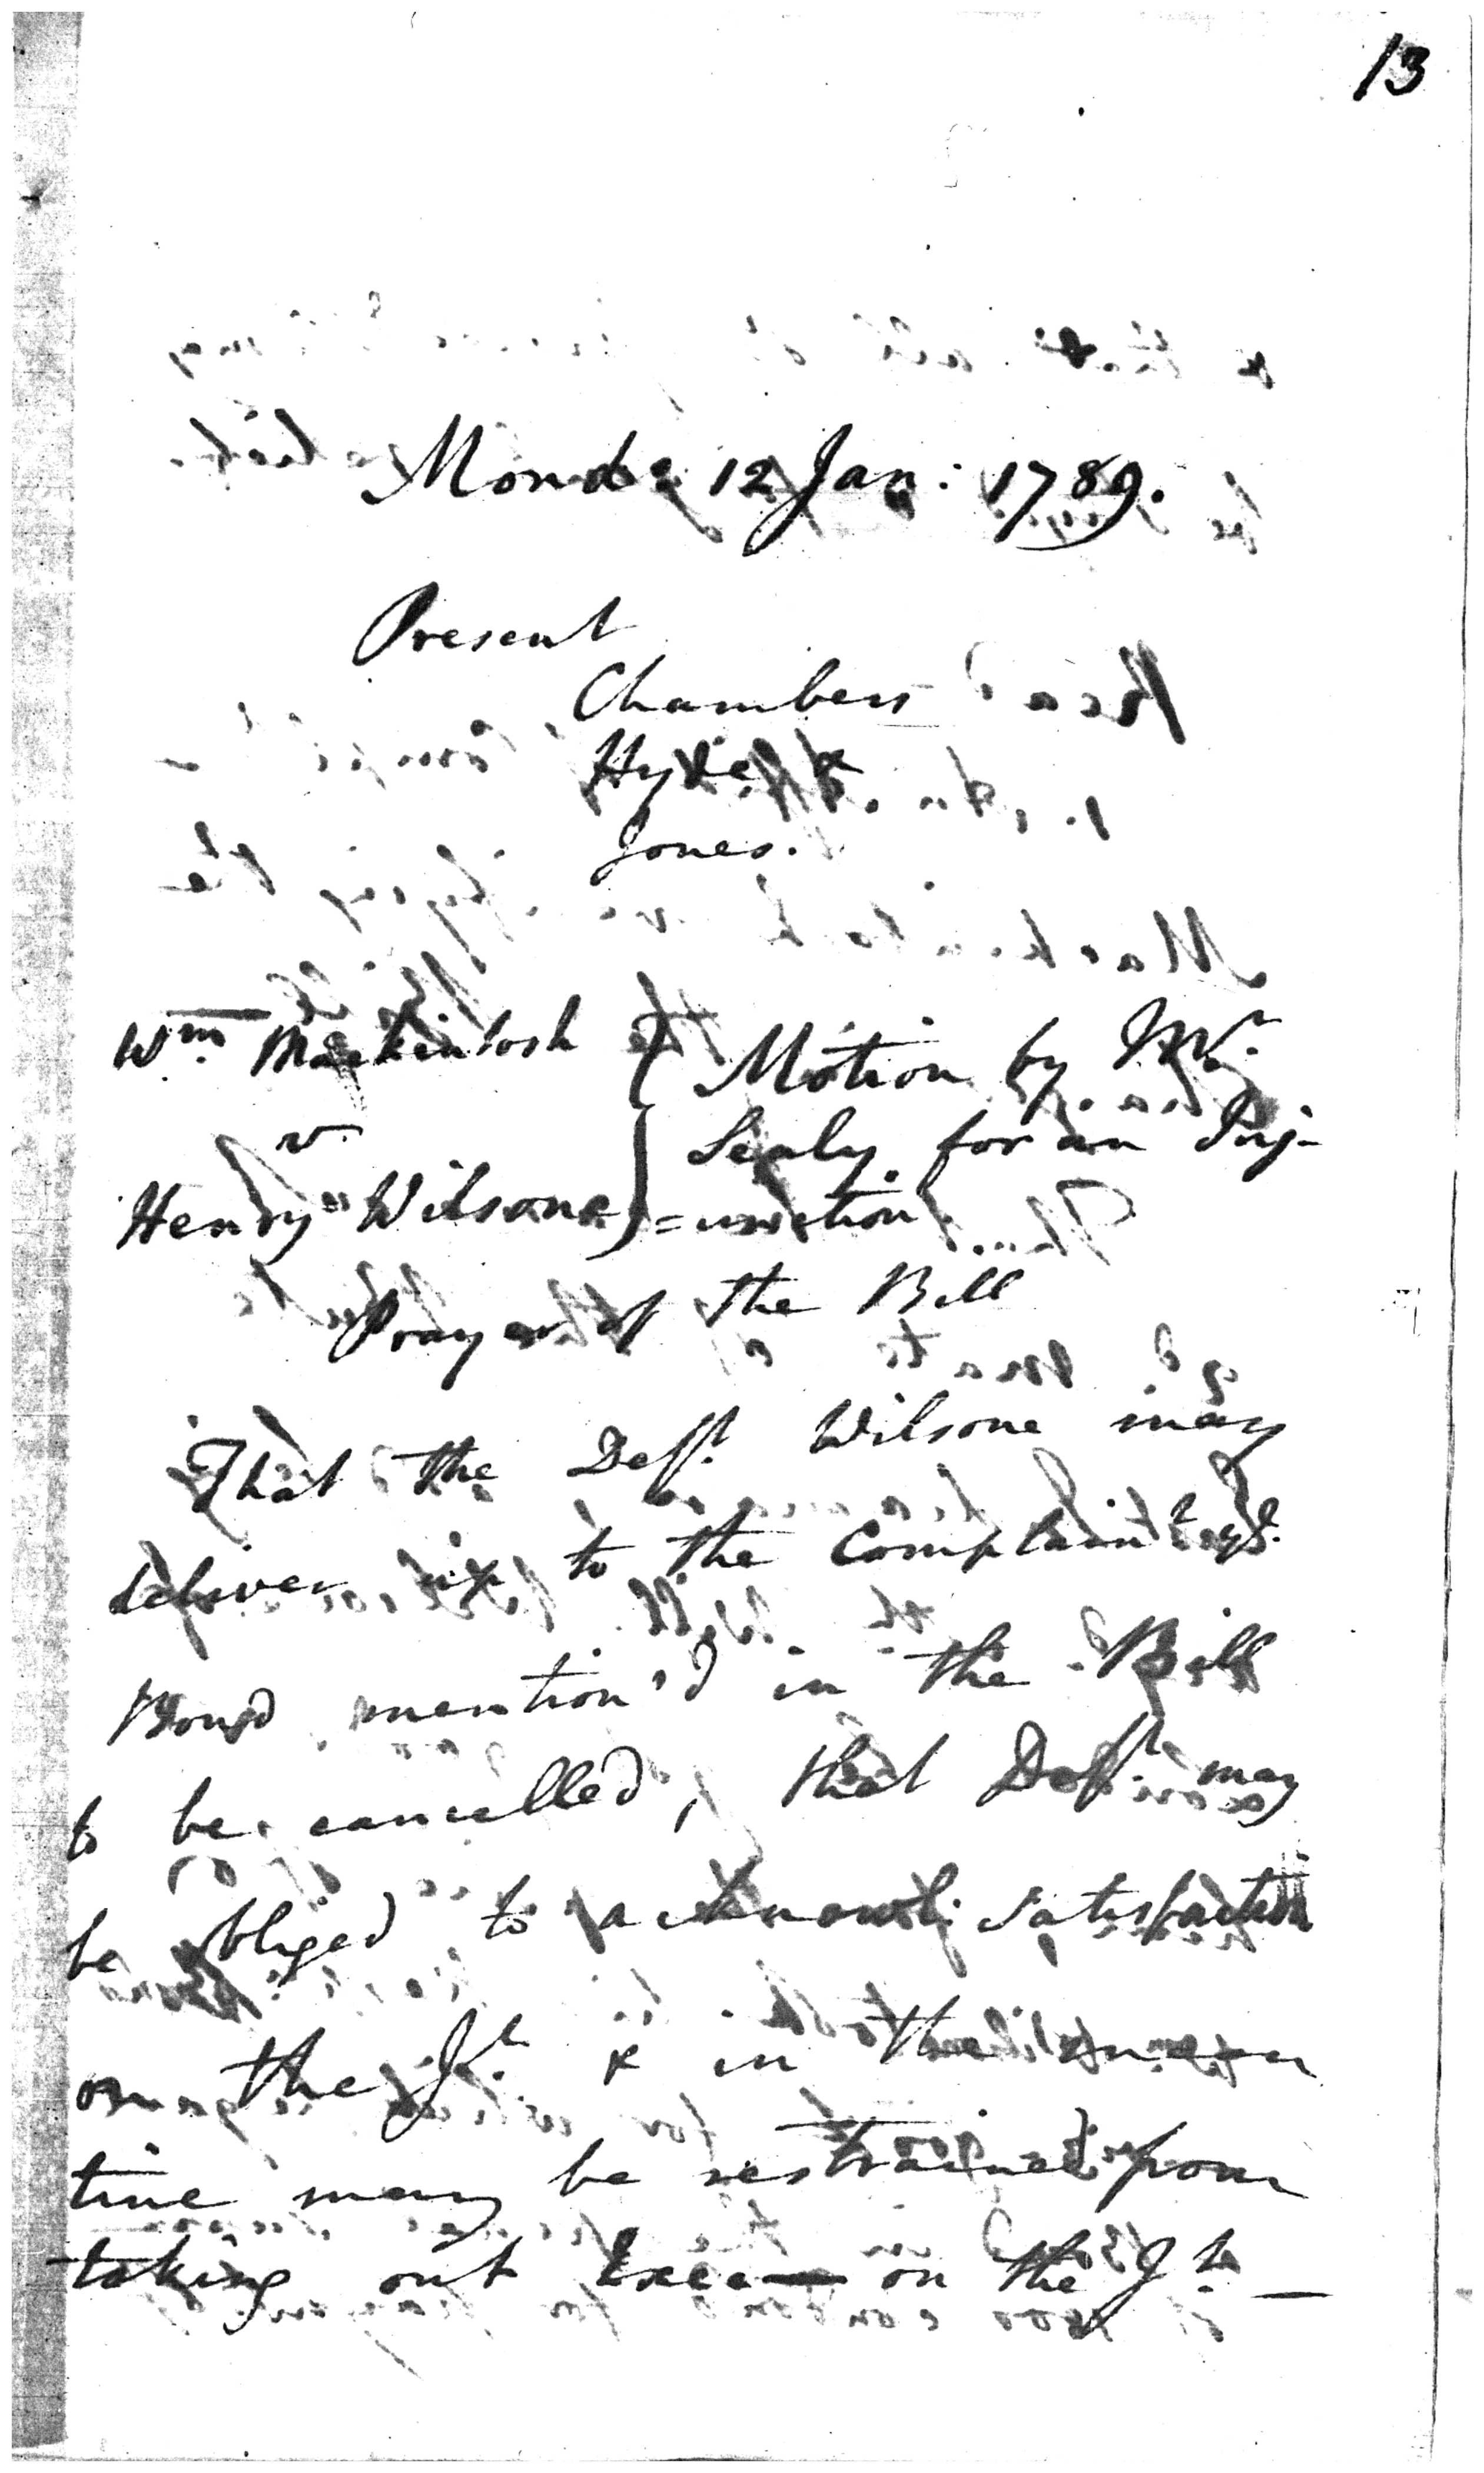 13
Monday 12 Jan: 1789.
Present
Chambers
Hyde &
Jones.
Wm. Mackintosh
v.
Henry Wilsone
Motion by Mr.
Sealy for an Inj-
=unction
Prayer of the Bill
That the Deft. Wilsone may
deliver up to the Complaint ye.
Bond mention'd in the Bill
to be cancelled, that Deft. may
be obliged to acknowl: satisfaction
on the Jt. & in the mean
time may be restrained from
taking out Exec— on the Jt. —